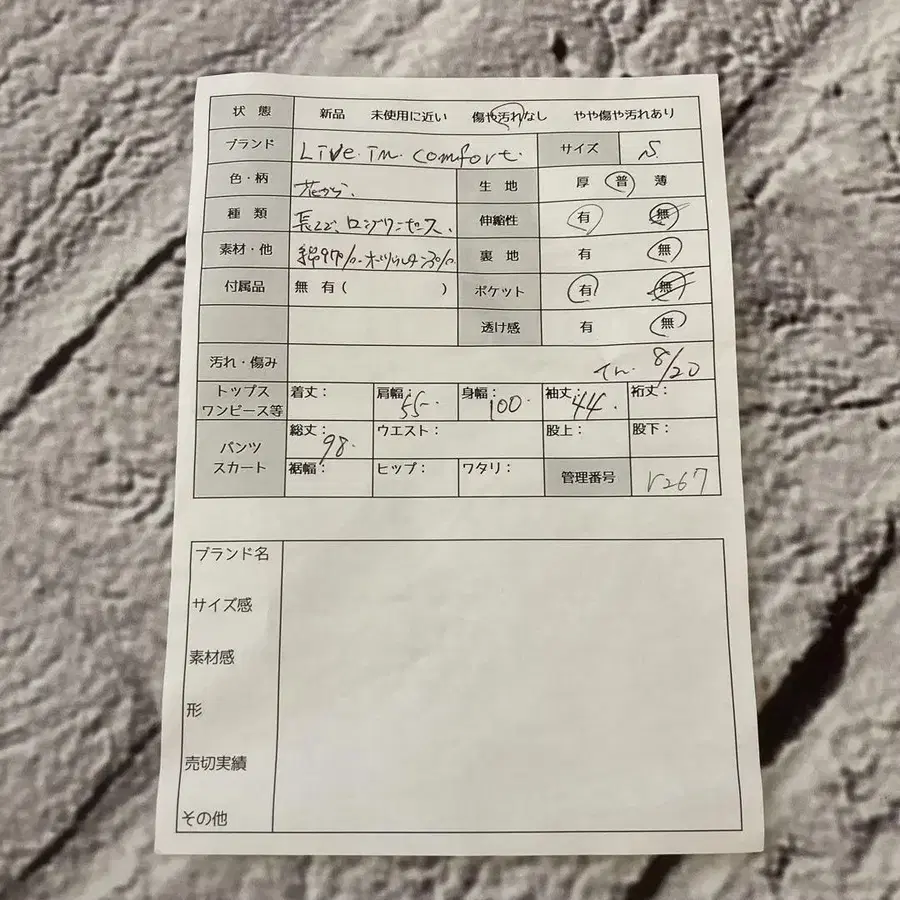 状態 新品 未使用に近い 傷や汚れなし やや傷や汚れあり
ブランド Live.in.comfort. サイズ S.
色・柄 花がら. 生地 厚 普 薄
種類 長そで、ロングワンピース. 伸縮性 有 無
素材・他 綿97%.ポリウレタン3%. 裏地 有 無
付属品 無 有( ) ポケット 有 無
透け感 有 無
汚れ・傷み 8/20
トップス ワンピース等 着丈: 肩幅: 55. 身幅: 100. 袖丈: 44. 裄丈:
パンツ スカート 総丈: 98. ウエスト: 股上: 股下:
裾幅: ヒップ: ワタリ: 管理番号 r267
ブランド名
サイズ感
素材感
形
売切実績
その他